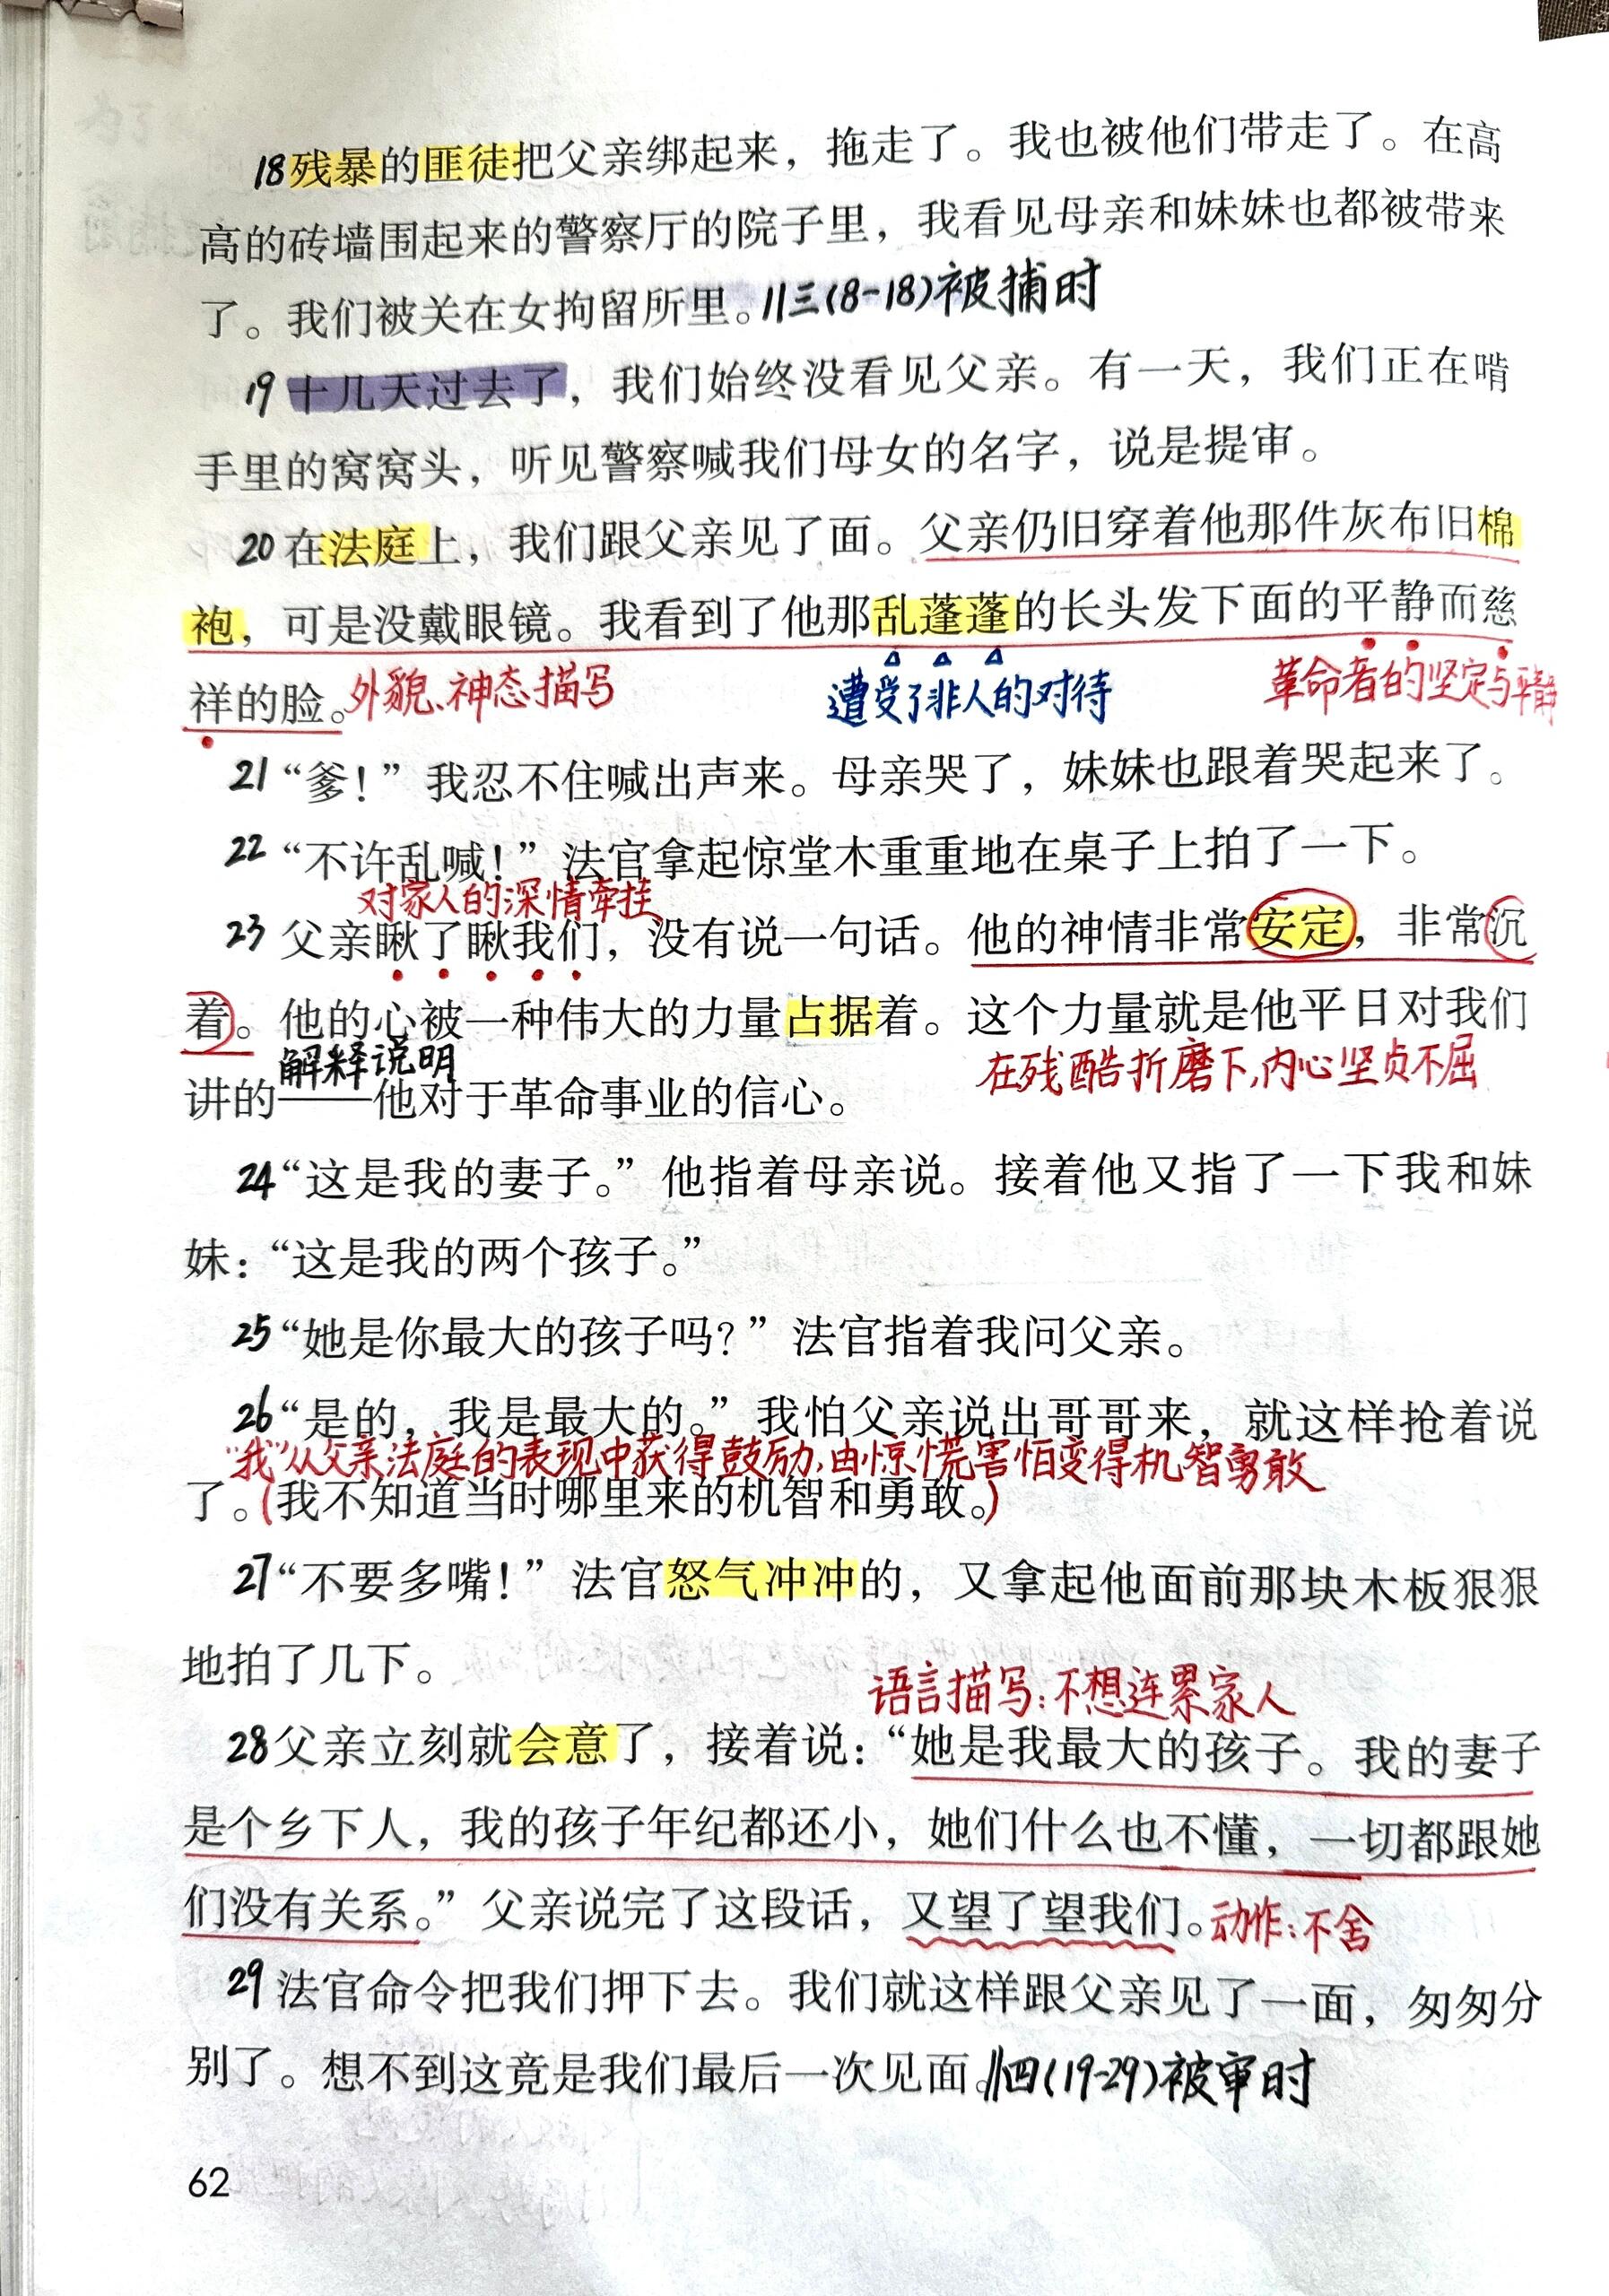 18残暴的匪徒把父亲绑起来，拖走了。我也被他们带走了。在高
高的砖墙围起来的警察厅的院子里，我看见母亲和妹妹也都被带来
了。我们被关在女拘留所里。∥三(8-18)被捕时
19十几天过去了，我们始终没看见父亲。有一天，我们正在啃
手里的窝窝头，听见警察喊我们母女的名字，说是提审。
20在法庭上，我们跟父亲见了面。父亲仍旧穿着他那件灰布旧棉
袍，可是没戴眼镜。我看到了他那乱蓬蓬的长头发下面的平静而慈
祥的脸。外貌、神态描写 遭受了非人的对待 革命者的坚定与平静
21“爹！”我忍不住喊出声来。母亲哭了，妹妹也跟着哭起来了。
22“不许乱喊！”法官拿起惊堂木重重地在桌子上拍了一下。
对家人的深情牵挂
23父亲瞅了瞅我们，没有说一句话。他的神情非常安定，非常沉
着。他的心被一种伟大的力量占据着。这个力量就是他平日对我们
解释说明 在残酷折磨下,内心坚贞不屈
讲的——他对于革命事业的信心。
24“这是我的妻子。”他指着母亲说。接着他又指了一下我和妹
妹：“这是我的两个孩子。”
25“她是你最大的孩子吗？”法官指着我问父亲。
26“是的，我是最大的。”我怕父亲说出哥哥来，就这样抢着说
“我”从父亲法庭的表现中获得鼓励,由惊慌害怕变得机智勇敢
了。(我不知道当时哪里来的机智和勇敢。)
27“不要多嘴！”法官怒气冲冲的，又拿起他面前那块木板狠狠
地拍了几下。
语言描写:不想连累家人
28父亲立刻就会意了，接着说：“她是我最大的孩子。我的妻子
是个乡下人，我的孩子年纪都还小，她们什么也不懂，一切都跟她
们没有关系。”父亲说完了这段话，又望了望我们。动作:不舍
29法官命令把我们押下去。我们就这样跟父亲见了一面，匆匆分
别了。想不到这竟是我们最后一次见面。∥四(19-29)被审时
62